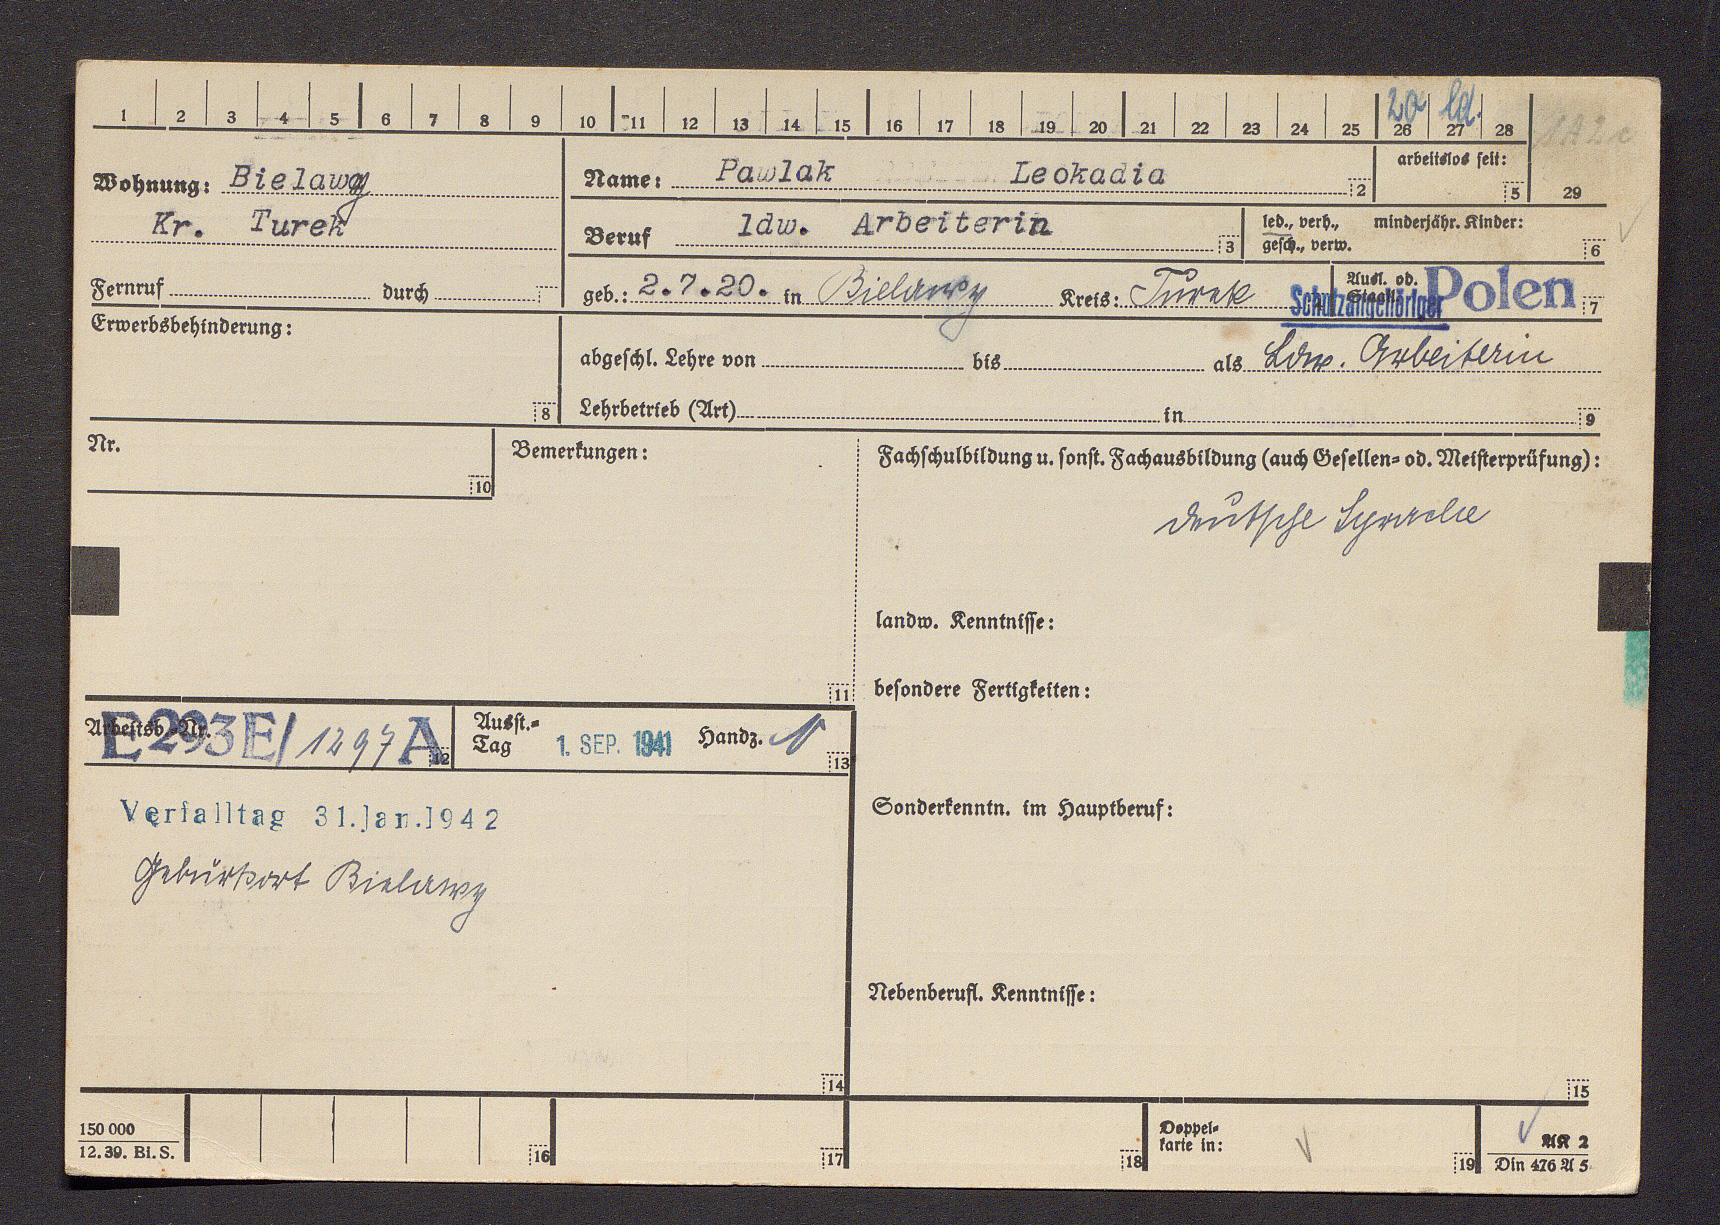 20 ld.
1 2 3 4 5 6 7 8 9 10 11 12 13 14 15 16 17 18 19 20 21 22 23 24 25 26 27 28
Wohnung: Bielawy
Kr. Turek
Name: Pawlak Leokadia 2
arbeitslos seit: 5
29
Beruf ldw. Arbeiterin 3
led., verh., minderjähr. Kinder:
gesch., verw. 6
Fernruf durch
geb.: 2.7.20. in Bielawy Kreis: Turek
Ausl. od.
Staatl.
Schutzangehöriger Polen 7
Erwerbsbehinderung:
8
abgeschl. Lehre von bis als Ldw. Arbeiterin
Lehrbetrieb (Art) in 9
Nr.
10
Bemerkungen:
11
Fachschulbildung u. sonst. Fachausbildung (auch Gesellen= od. Meisterprüfung):
deutsche Sprache
landw. Kenntnisse:
besondere Fertigkeiten:
Arbeitsb.-Nr.
E 293 E/1297 A 12
Ausst.=
Tag 1. SEP. 1941 Handz. 13
Verfalltag 31.Jan.1942
Geburtsort Bielawy
14
Sonderkenntn. im Hauptberuf:
Nebenberufl. Kenntnisse:
15
150 000
12. 39. Bi. S.
16
17
18
Doppel=
karte in:
19
AK 2
Din 476 A 5